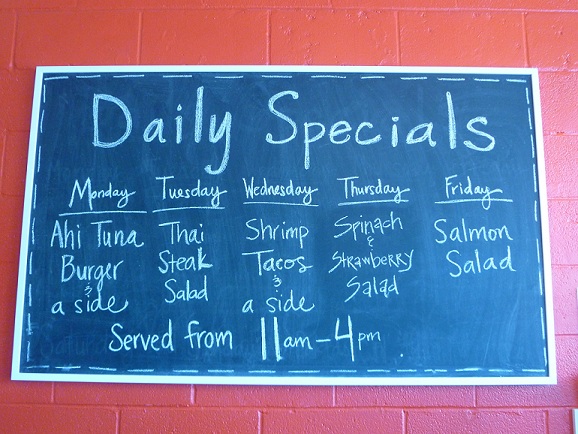 Daily Specials
Monday Tuesday Wednesday Thursday Friday
Ahi Tuna Burger & a side
Thai Steak Salad
Shrimp Tacos & a side
Spinach & Strawberry Salad
Salmon Salad
Served from 11am-4pm